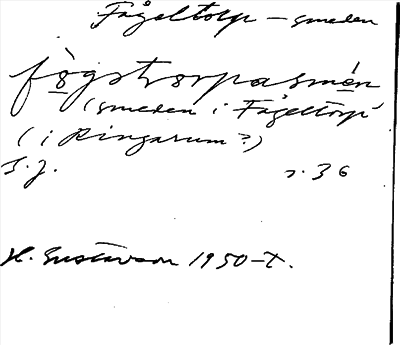 Fågeltorp – smeden
fògstorpasmén
(smeden i Fågeltorp)
(i Ringarum?)
S.J. s. 36
H. Gustavson 1950-t.